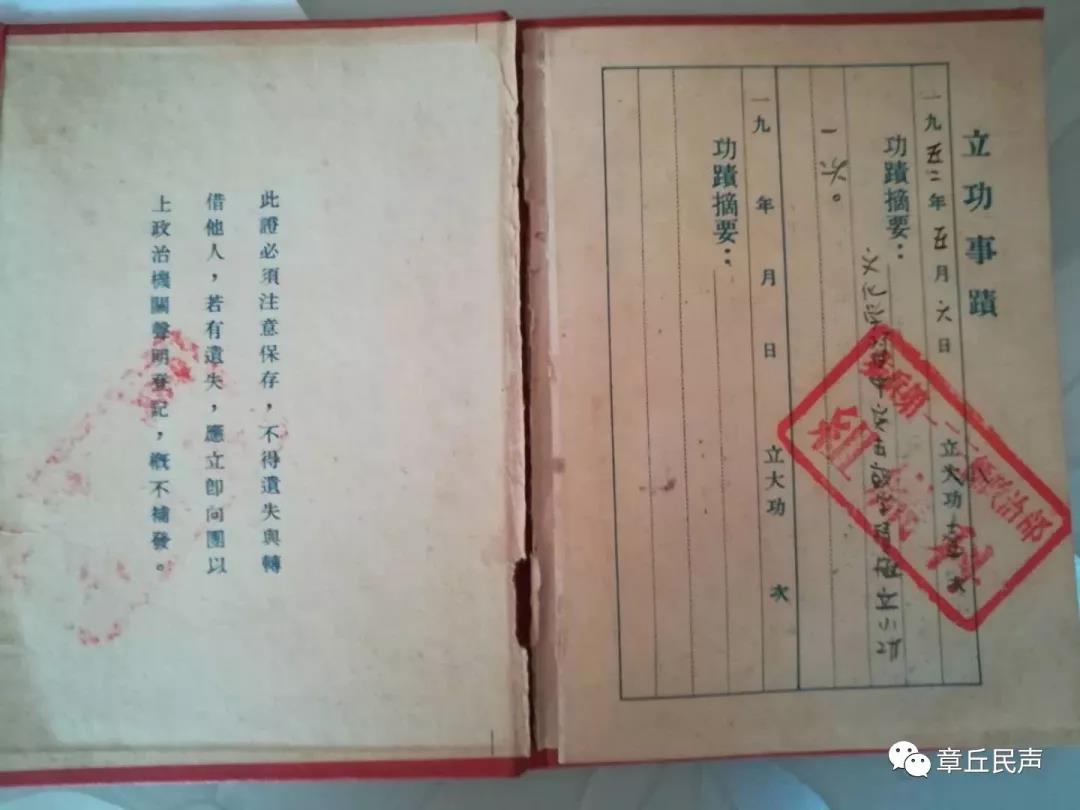 立功事蹟
一九五二年五月六日 立大功 壹 次
功蹟摘要：
文化学习中 学习 立小功
一次。
一九 年 月 日 立大功 次
功蹟摘要：
政治部
組織科
此證必須注意保存，不得遺失與轉
借他人，若有遺失，應立卽向團以
上政治機關聲明登記，槪不補發。
章丘民声